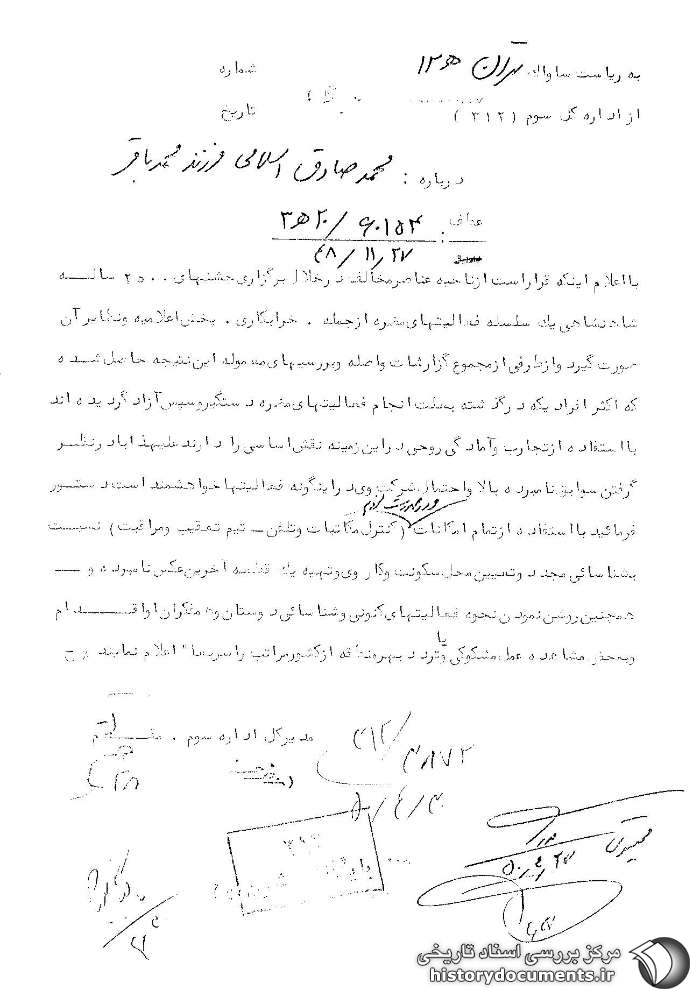 به ریاست ساواک تهران ۱۲ه شماره
از اداره کل سوم (۳۱۲) تاریخ
درباره : محمد صادق اسلامی فرزند محمد باقر
عطف : ۶۰۱۵۴ / ۲۰ه۳
۴۸/۱۱/۲۷
با اعلام اینکه قرار است از ناحیه عناصر مخالف در خلال برگزاری جشنهای ۲۵۰۰ ساله
شاهنشاهی یک سلسله فعالیتهای مضره از جمله . خرابکاری . پخش اعلامیه ونظایر آن
صورت گیرد واز طرفی از مجموع گزارشات واصله وبررسیهای معموله این نتیجه حاصل شده
که اکثر افرادیکه در گذشته بعلت انجام فعالیتهای مضره دستگیر وسپس آزاد گردیده اند
با استفاده از تجارب وآمادگی روحی در این زمینه نقش اساسی را دارند علیهذا با در نظر
گرفتن سوابق نامبرده بالا واحتمال شرکت وی در اینگونه فعالیتها خواهشمند است دستور
فرمائید با استفاده از تمام امکانات (کنترل مکاتبات وتلفن ـ تیم تعقیب ومراقبت) نسبت
بشناسائی مجدد وتعیین محل سکونت وکار وی وتهیه یک قطعه آخرین عکس نامبرده و ـ
همچنین روشن نمودن نحوه فعالیتهای کنونی وشناسائی دوستان وهمفکران او اقدام
وبمحض مشاهده عمل مشکوکی ویا تردد بهر منطقه از کشور مراتب را سریعا" اعلام نمایند ج
مدیر کل اداره سوم . مقدم
۳۱۲/
۴۸۷۲
۵۰/۴/۳۰
۳۱۲
بایگانی
مرکز بررسی اسناد تاریخی
historydocuments.ir